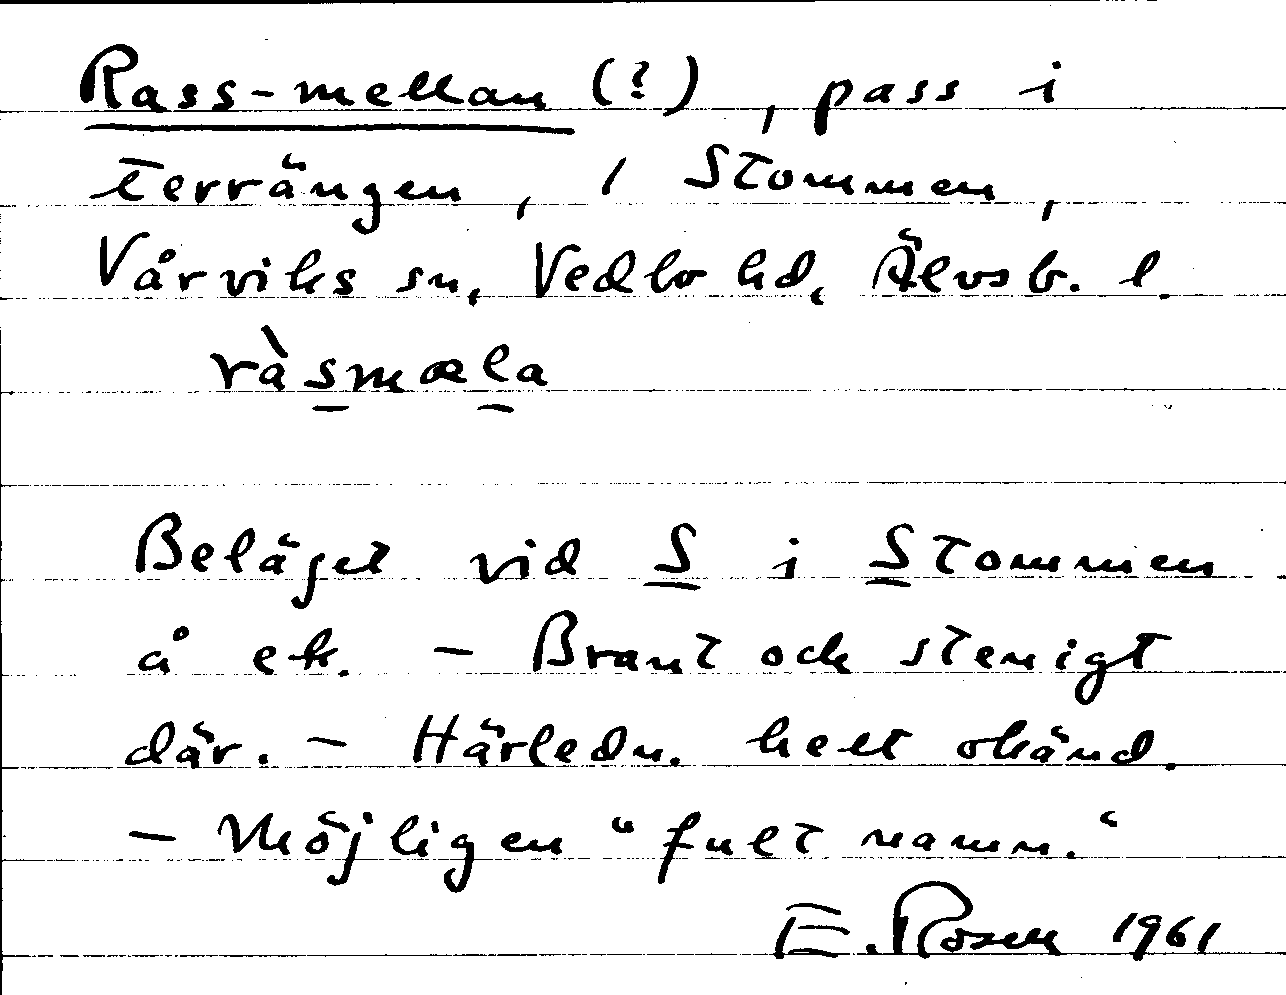 Rass-mellan (?), pass i
terrängen, i Stommen,
Vårviks sn, Vedbo hd, Älvsb. l.
ràsmæla
Beläget vid S i Stommen
å ek. - Brant och stenigt
där. - Härledn. helt okänd.
- Möjligen "fult namn."
E. Rosen 1961